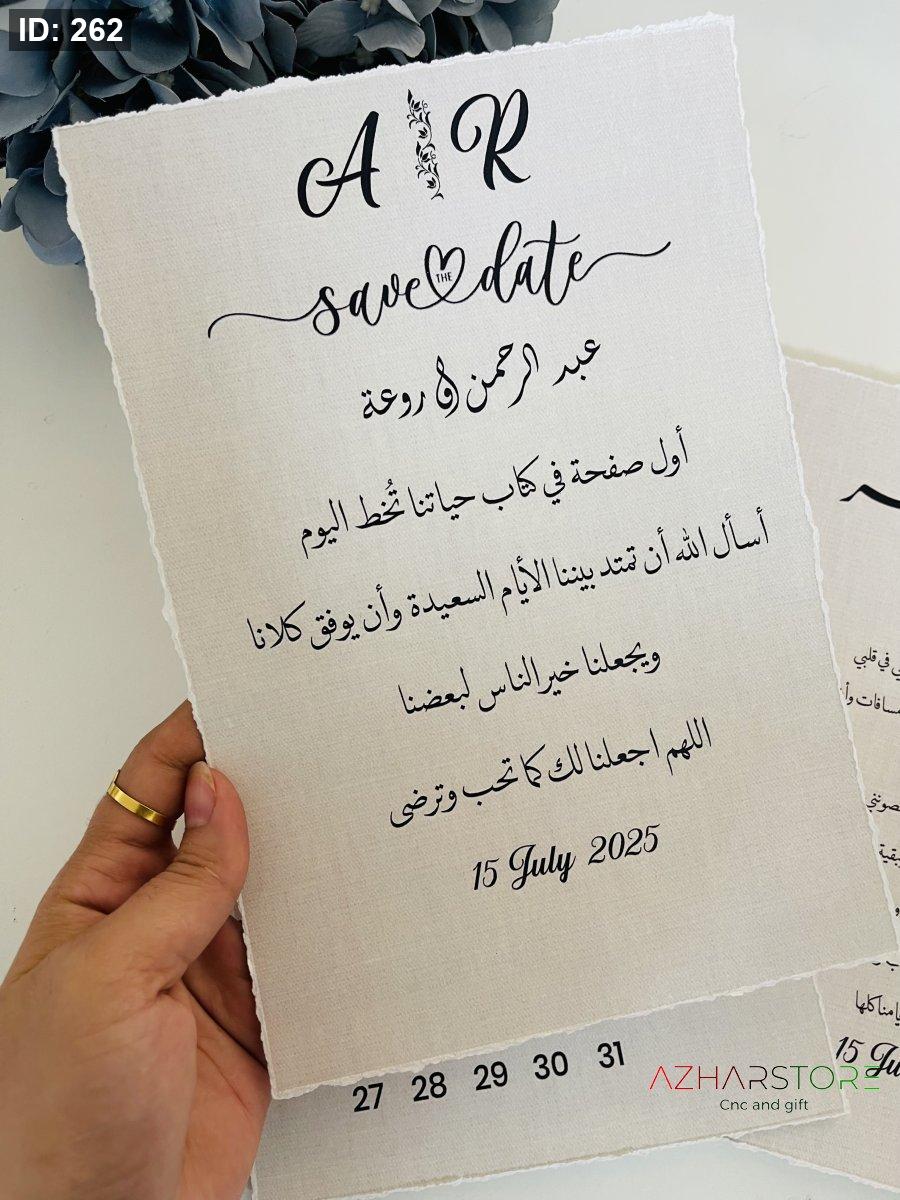 ID: 262
A R
save THE date
عبد الرحمن & روعة
أول صفحة في كتاب حياتنا تُخط اليوم
أسأل الله أن تمتد بيننا الأيام السعيدة وأن يوفق كلانا
ويجعلنا خير الناس لبعضنا
اللهم اجعلنا لك كما تحب وترضى
15 July 2025
في قلبي
كلها
15 Ju
27 28 29 30 31
AZHARSTORE
Cnc and gift